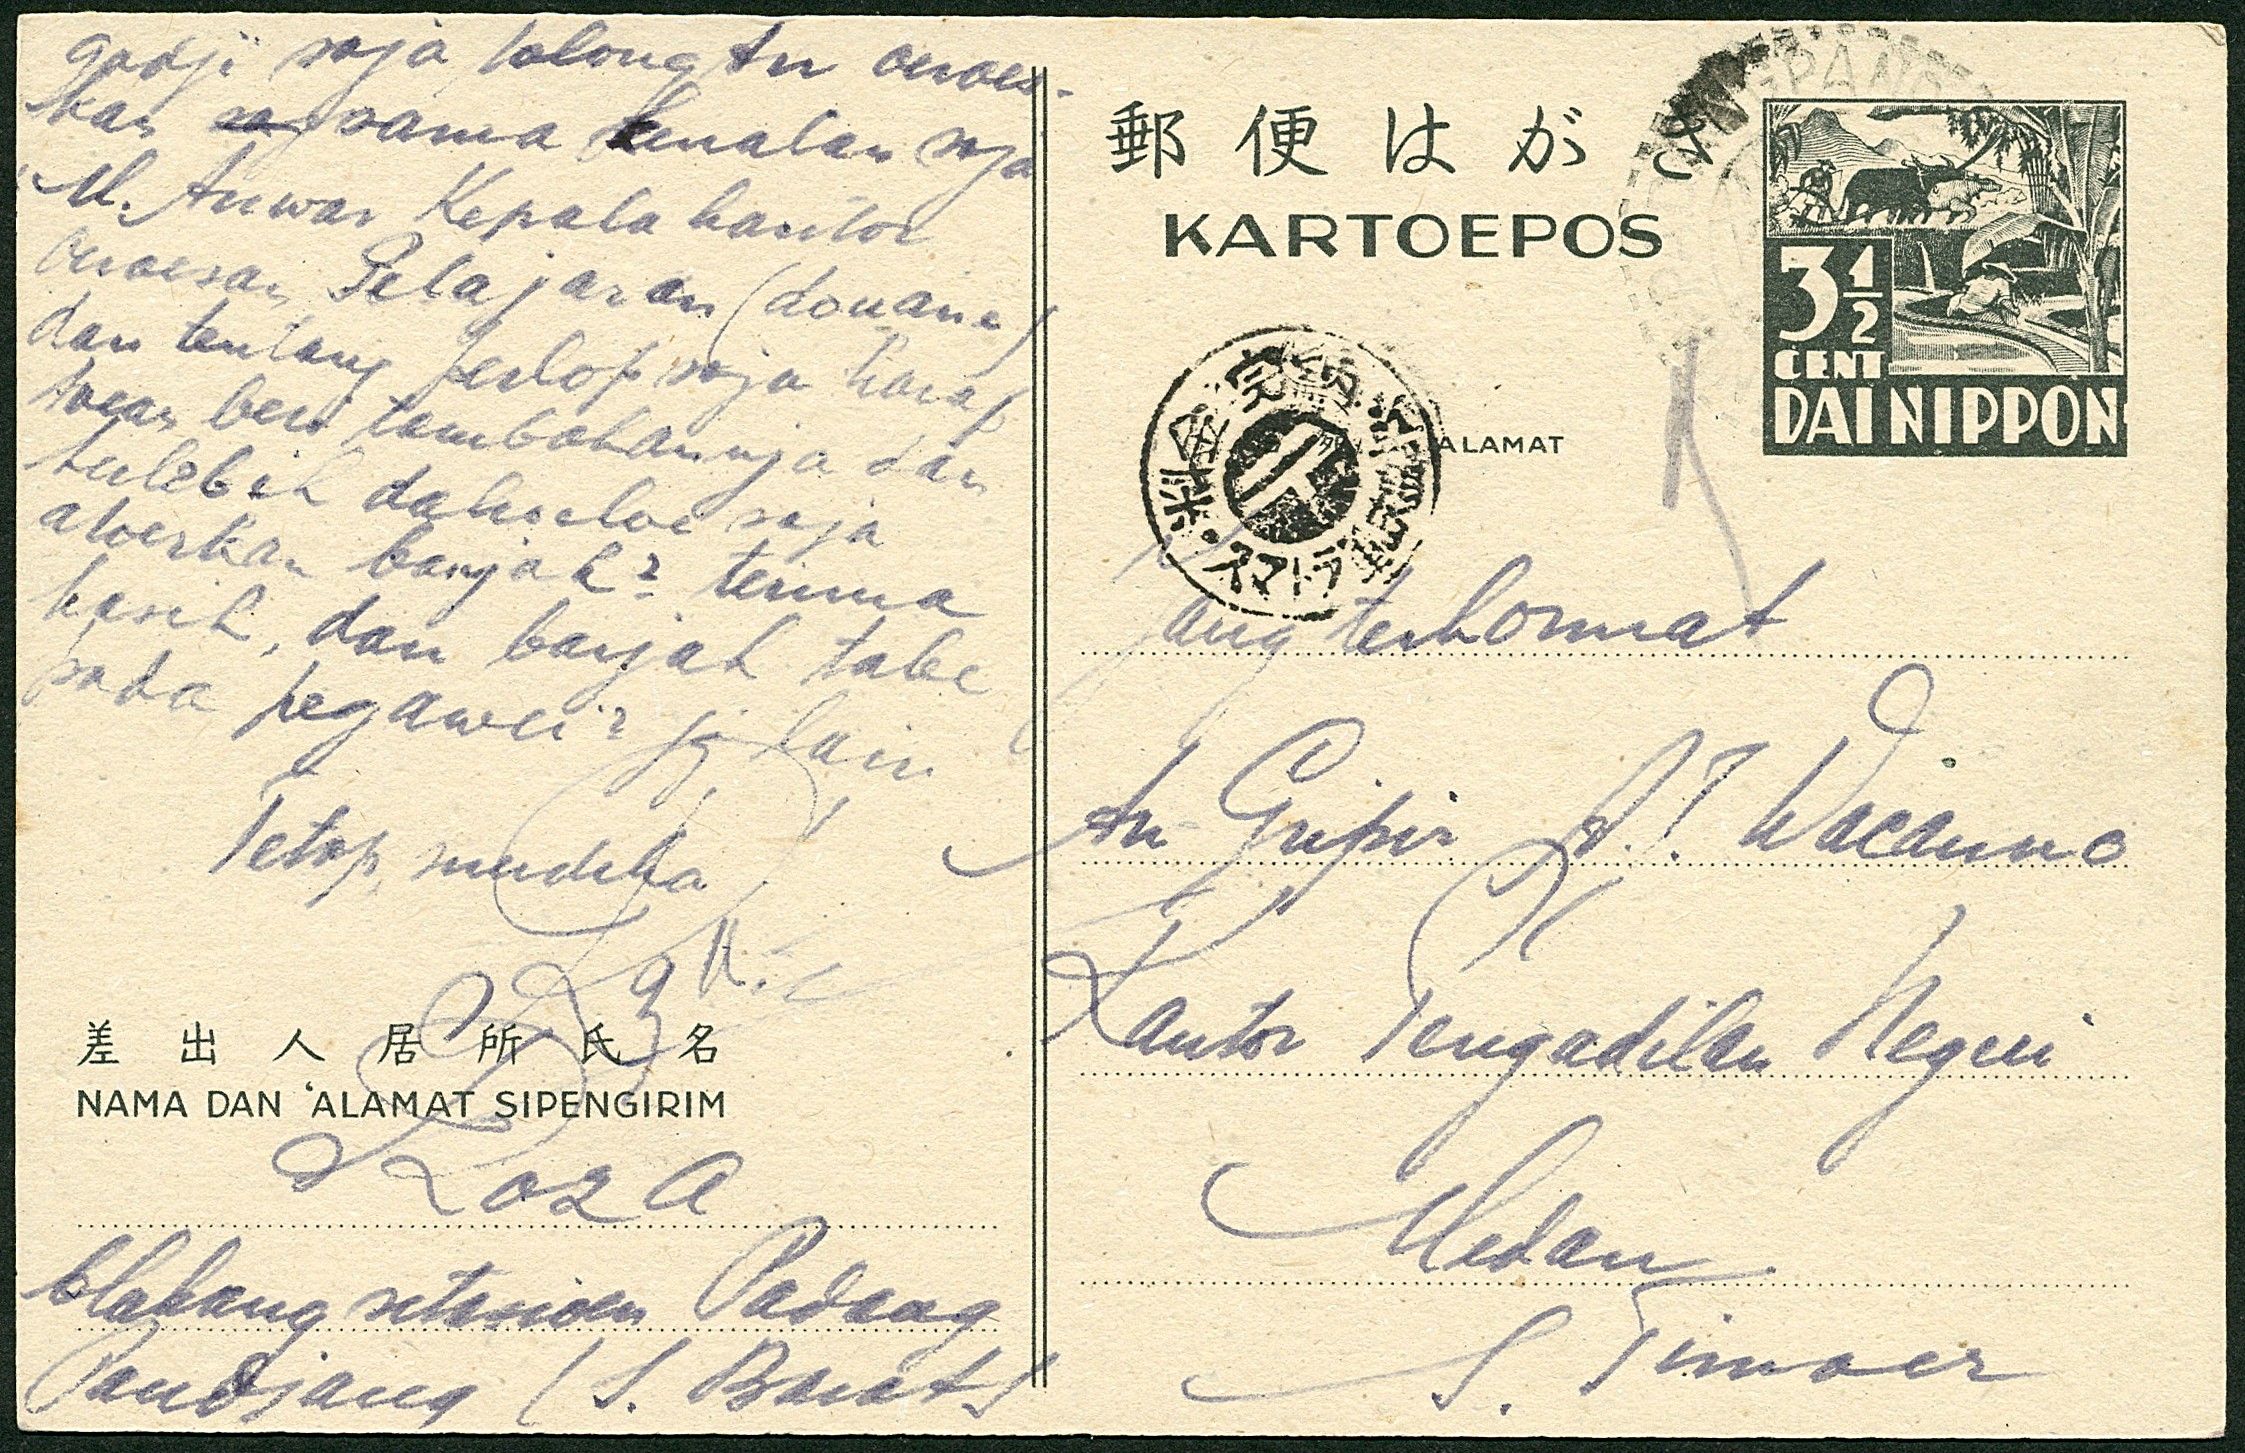 gadji saja tolong tn oeroes-
kan sama kenalan saja
M. Anwar Kepala kantor
oeroesan Pelajaran (douane)
dan tentang perlop saja harap
toean beri tambahannja dan
terlebih dahoeloe saja
atoerkan banjak2 terima
kasih, dan banjak tabe
pada pegawei2 jg lain
Tetap merdeka
差出人居所氏名
NAMA DAN 'ALAMAT SIPENGIRIM
Roza
blakang setasioen Padang
Pandjang (S. Barat)
郵便はがき
KARTOEPOS
3 1/2
CENT
DAI NIPPON
スマトラ
ALAMAT
Jang terhormat
tn Gripir
Kantor Pengadilan Negeri
Medan
S. Timoer